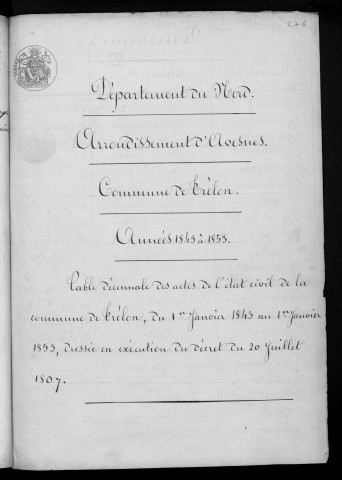 276
Département du Nord.
Arrondissement d'Avesnes.
Commune de Trélon.
Années 1843 à 1853.
Table décennale des actes de l'état civil de la
commune de Trélon, du 1er Janvier 1843 au 1er Janvier
1853, dressée en exécution du décret du 20 Juillet
1807.